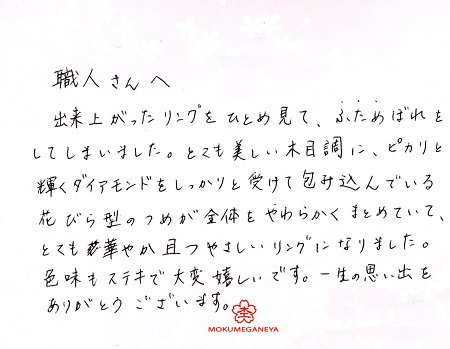 職人さんへ
出来上がったリングをひとめ見て、ふためぼれを
してしまいました。とても美しい木目調に、ピカリと
輝くダイアモンドをしっかりと受けて包み込んでいる
花びら型のつめが全体をやわらかくまとめていて、
とても華やか且つやさしいリングになりました。
色味もステキで大変嬉しいです。一生の思い出を
ありがとうございます。
MOKUMEGANEYA